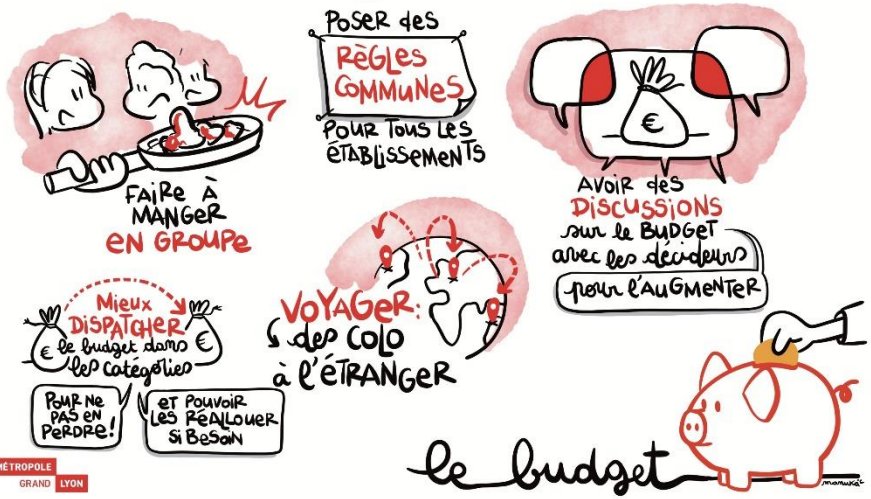 FAIRE À
MANGER
EN GROUPE
POSER des
RÈGLES
COMMUNES
POUR TOUS LES
ÉTABLISSEMENTS
AVOIR des
DISCUSSIONS
sur le BUDGET
avec les décideurs
pour l'AUGMENTER
Mieux
DISPATCHER
le budget dans
les catégories
€
€
€
POUR NE
PAS EN
PERDRE!
ET POUVOIR
LES RÉALLOUER
SI BESOIN
VOYAGER:
des COLO
à l'ÉTRANGER
le budget
manuka
MÉTROPOLE
GRAND LYON